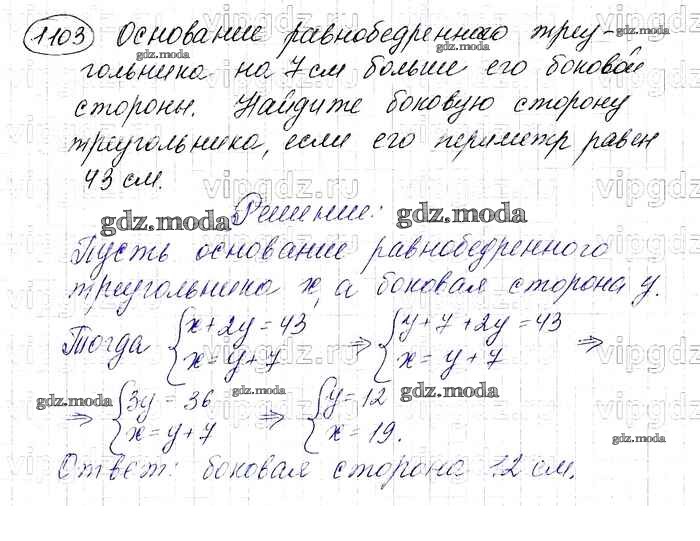 1103 Основание равнобедренного треу-
гольника на 7 см больше его боковой
стороны. Найдите боковую сторону
треугольника, если его периметр равен
43 см.
Решение:
Пусть основание равнобедренного
треугольника x, а боковая сторона y.
Тогда { x + 2y = 43 ⇒ { y + 7 + 2y = 43 ⇒
x = y + 7 x = y + 7
⇒ { 3y = 36 ⇒ { y = 12
x = y + 7 x = 19.
Ответ: боковая сторона 12 см.
gdz.moda
vipgdz.ru